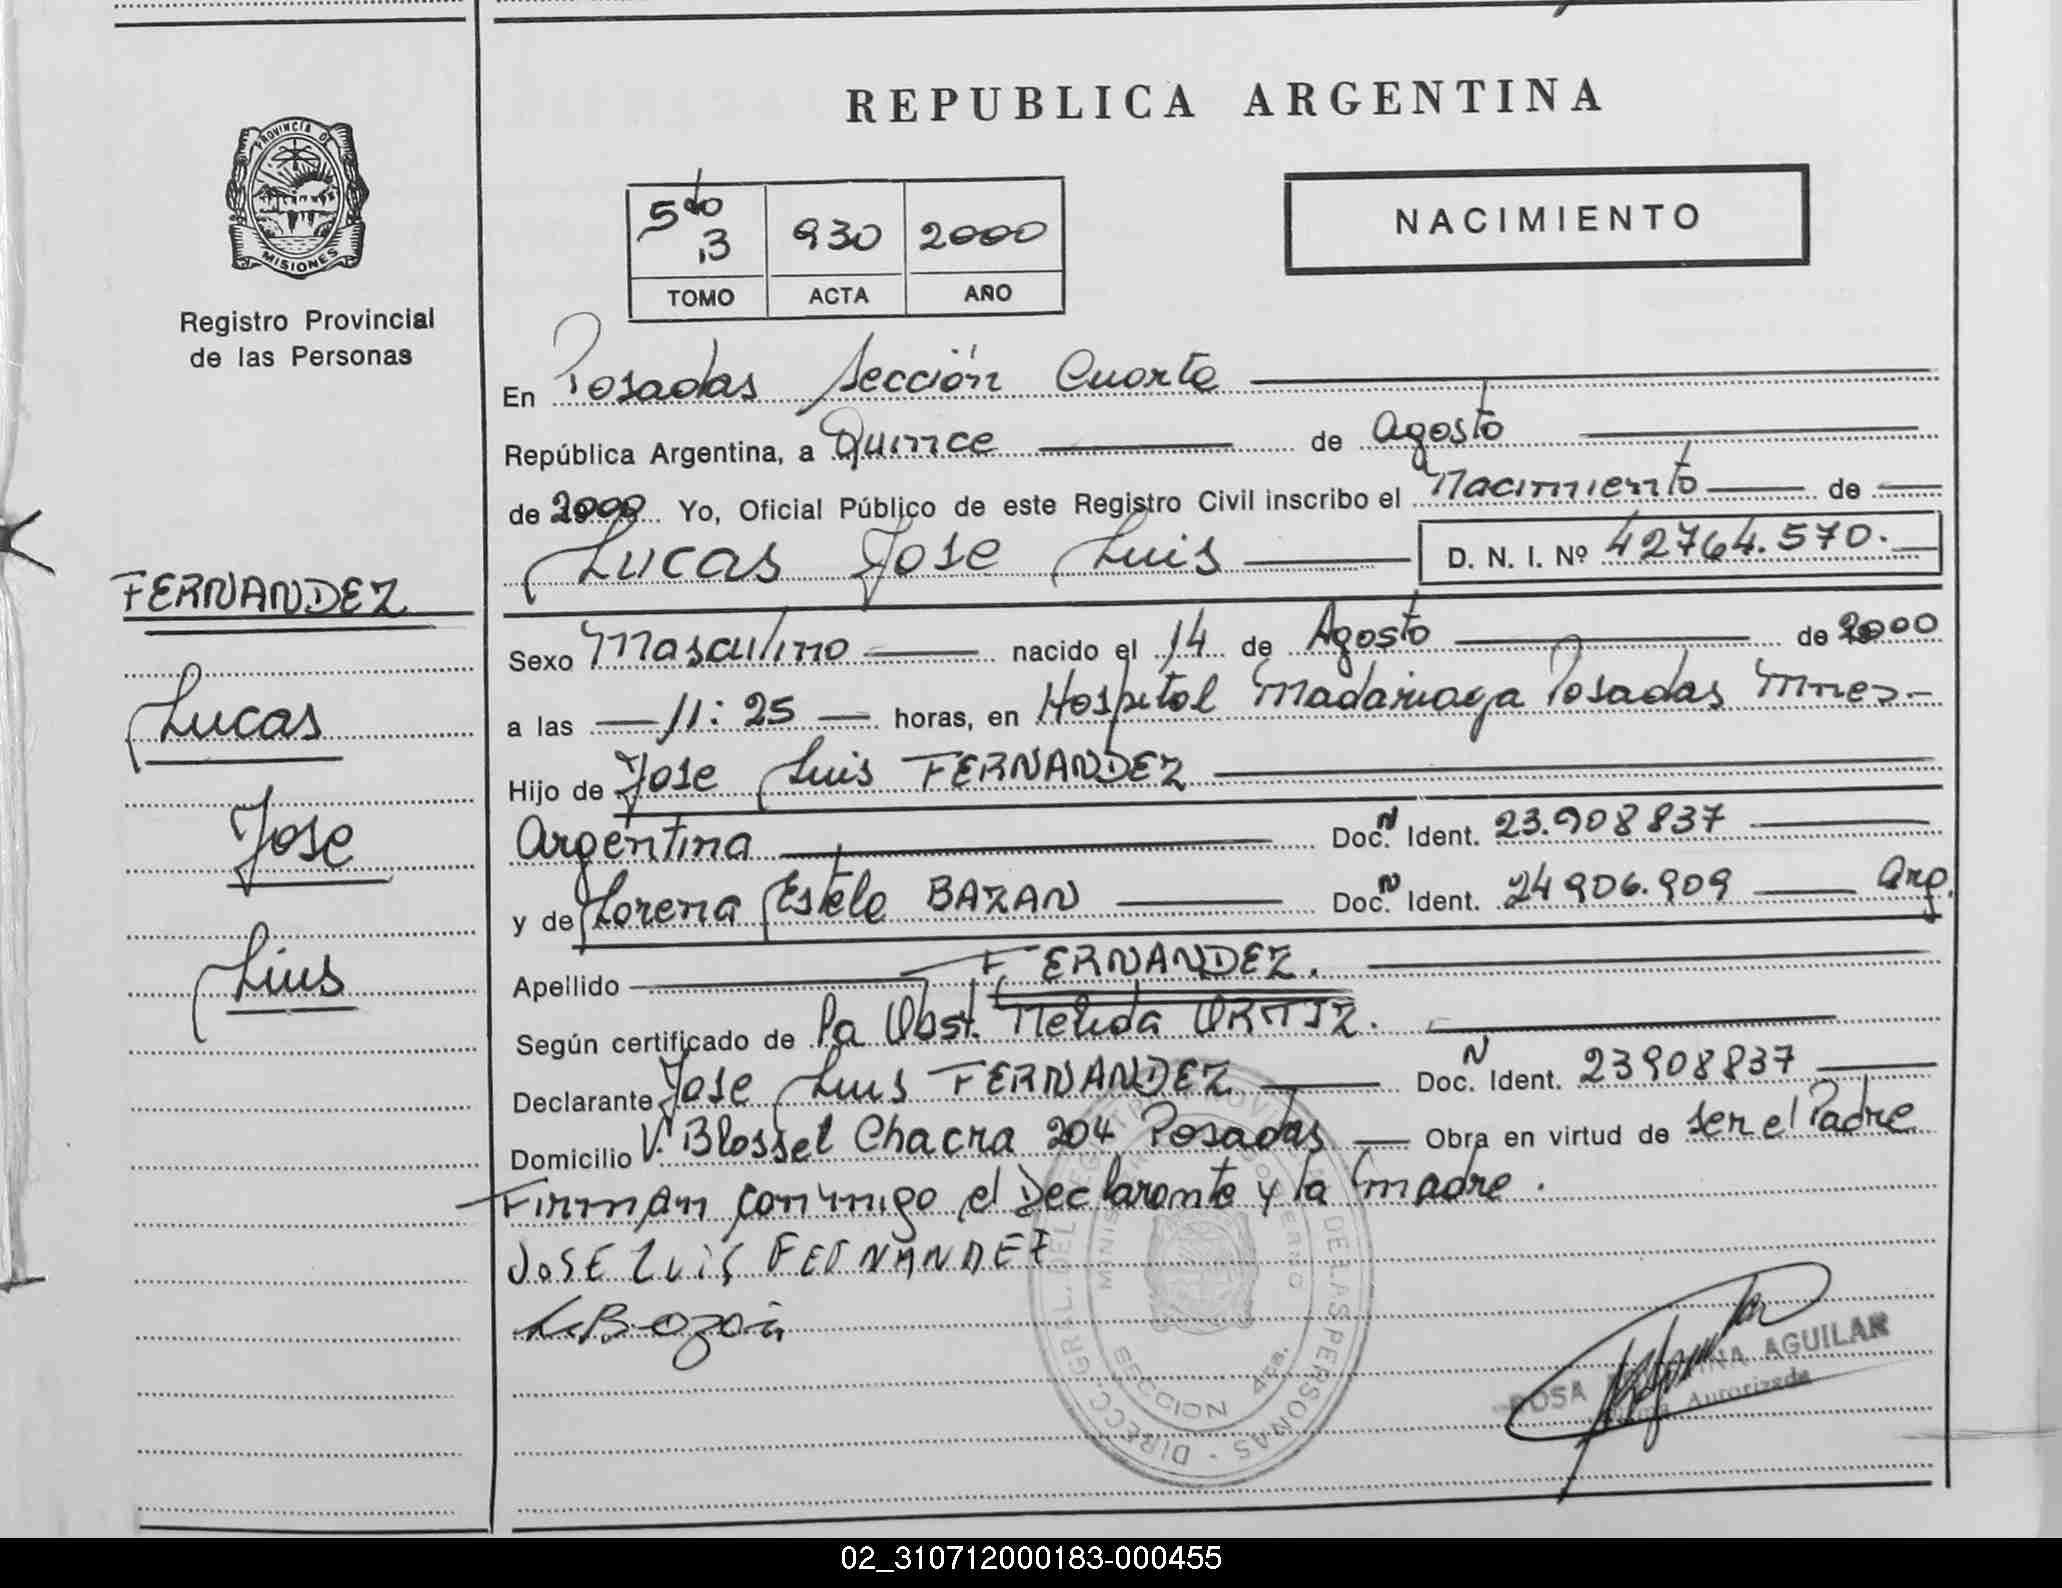 REPUBLICA ARGENTINA
PROVINCIA DE
MISIONES
Registro Provincial
de las Personas
5to 3 930 2000
TOMO ACTA AÑO
NACIMIENTO
En Posadas Sección Cuarta
República Argentina, a Quince de Agosto
de 2000 Yo, Oficial Público de este Registro Civil inscribo el Nacimiento de
Lucas Jose Luis D. N. I. Nº 42764.570.
FERNANDEZ
Lucas
Jose
Luis
Sexo Masculino nacido el 14 de Agosto de 2000
a las 11:25 horas, en Hospital Madariaga Posadas Mnes.-
Hijo de Jose Luis FERNANDEZ
Argentina Doc. N Ident. 23.908837
y de Lorena Estela BAZAN Doc. N Ident. 24906.909 Arg.
Apellido FERNANDEZ.
Según certificado de la Obst. Nelida ORTIZ.
Declarante Jose Luis FERNANDEZ Doc. N Ident. 23908837
Domicilio V. Blosset Chacra 204 Posadas Obra en virtud de ser el Padre
Firman conmigo el Declarante y la madre.
JOSE LUIS FERNANDEZ
L. Bazán
DIRECC. GRAL. DEL REGISTRO PROVINCIAL DE LAS PERSONAS
MINISTERIO DE GOBIERNO
SECCION 4ta.
ROSA AGUILAR
Firma Autorizada
02_310712000183-000455